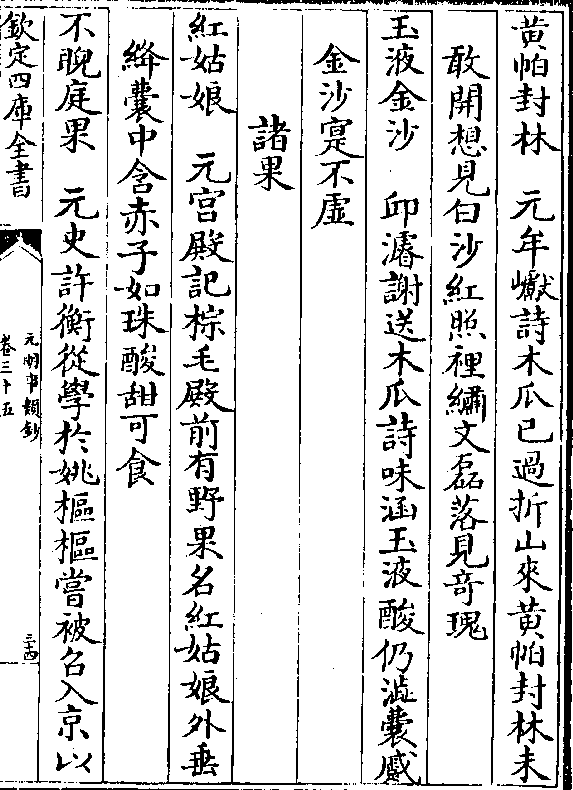 黄帕封林　元年巘詩木瓜已過折山來黄帕封林未
敢開想見白沙紅照裡繡文磊落見竒瑰
玉液金沙　邱濬謝送木瓜詩味涵玉液酸仍澁囊感
金沙寔不虛
諸果
紅姑娘　元宫殿記棕毛殿前有野果名紅姑娘外垂
絳囊中含赤子如珠酸甜可食
不睨庭果　元史許衡從學於姚樞樞嘗被名入京以
欽定四庫全書
元明事類鈔
卷三十五
三十四